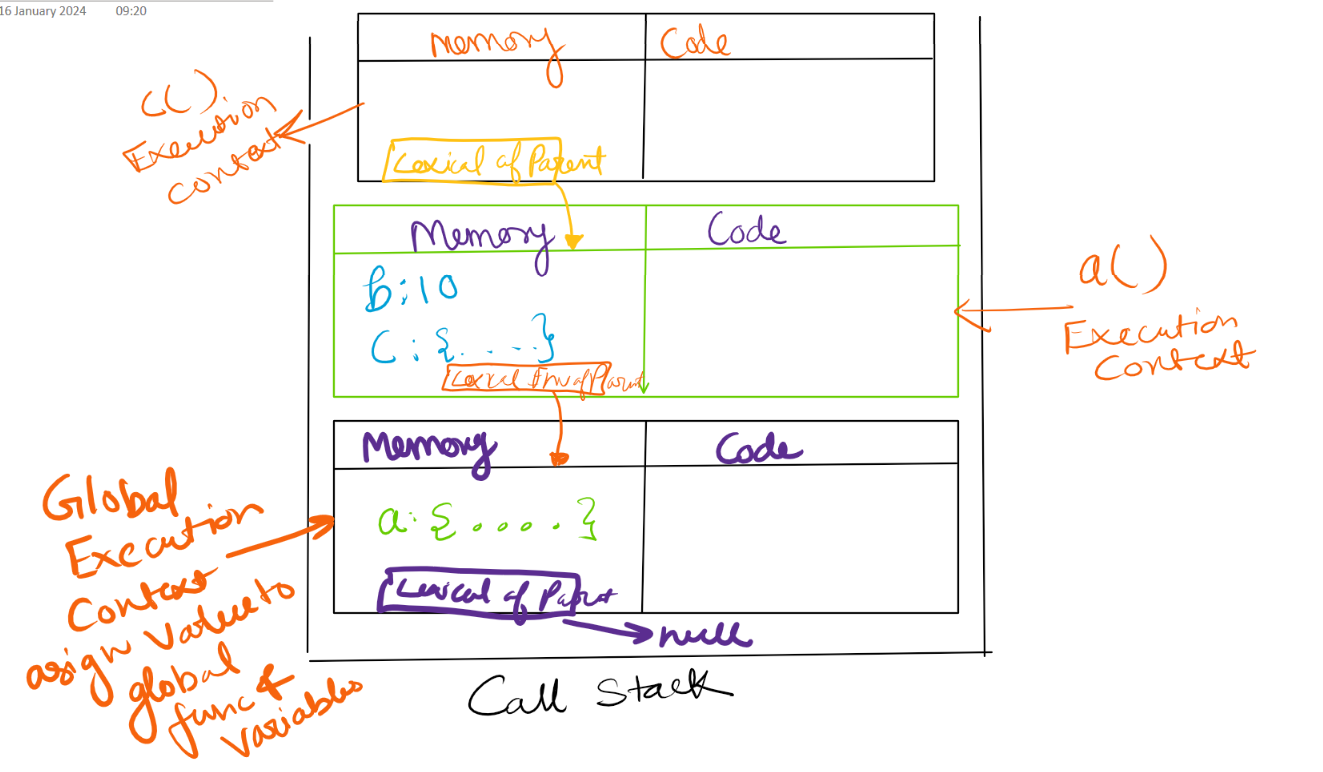 16 January 2024 09:20
Memory Code
C().
Execution
Context
Lexical of Parent
Memory Code
b:10
C:{....}
Lexical Env of Parent
a()
Execution
Context
Memory Code
a:{....}
Lexical of Parent
null
Global
Execution
Context
asign value to
global
func &
variables
Call Stack